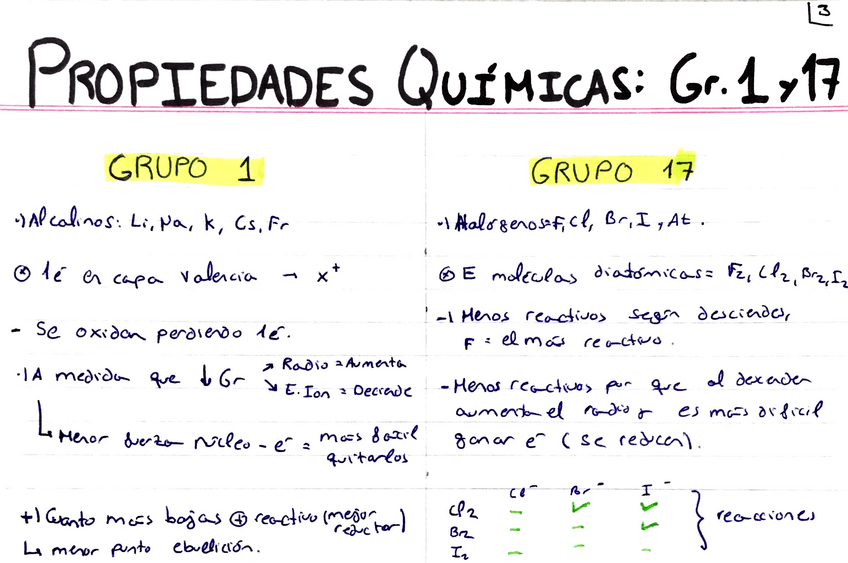 3
PROPIEDADES QUÍMICAS: Gr. 1 y 17
GRUPO 1
·) Alcalinos: Li, Na, K, Cs, Fr
⊗ 1é en capa valencia → x⁺
- Se oxidan perdiendo 1é.
·) A medida que ↓ Gr ↗ Radio = Aumenta
↘ E. Ion = Decrede
↳ Menor fuerza núcleo - e⁻ = más fácil
quitarlos
+) Cuanto más bajas ⊕ reactivo (mejor
reductor)
↳ menor punto ebullición.
GRUPO 17
·) Halógenos: F, Cl, Br, I, At.
⊗ E moléculas diatómicas = F₂, Cl₂, Br₂, I₂
-) Menos reactivos según desciendes,
F = el más reactivo.
- Menos reactivos por que al descender
aumenta el radio y es más difícil
ganar e⁻ (se reducen).
Cl⁻ Br⁻ I⁻
Cl₂ - ✓ ✓
Br₂ - - ✓
I₂ - - -
} reacciones